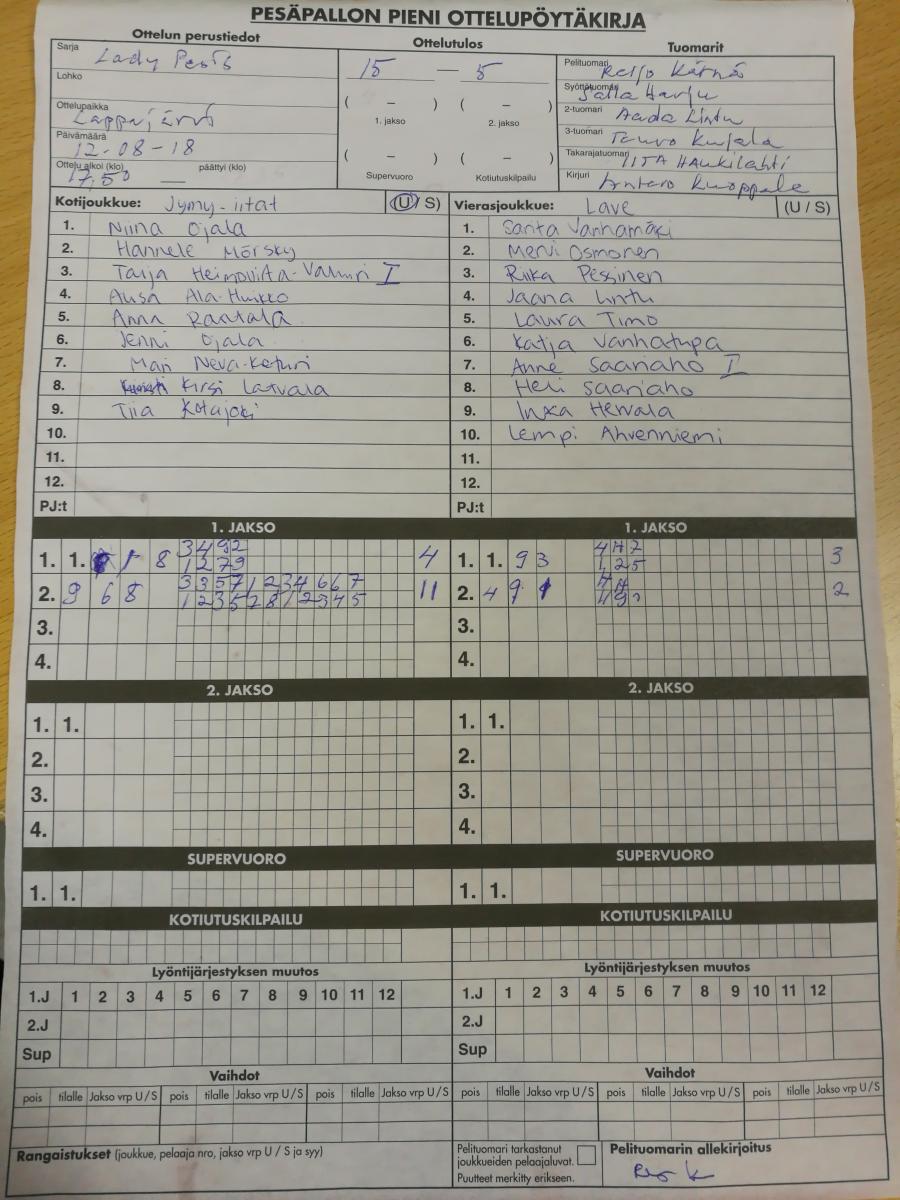 PESÄPALLON PIENI OTTELUPÖYTÄKIRJA
Ottelun perustiedot
Ottelutulos
Tuomarit
Sarja Lady Pesis
Lohko
Ottelupaikka Lappajärvi
Päivämäärä 12-08-18
Ottelu alkoi (klo) 17,50 päättyi (klo) —
15 — 5
( – ) ( – )
1. jakso 2. jakso
( – ) ( – )
Supervuoro Kotiutuskilpailu
Pelituomari Reijo Kärnä
Syöttötuomari Salla Harju
2-tuomari Aada Lintu
3-tuomari Tauvo Kujala
Takarajatuomari IITA HAUKILAHTI
Kirjuri Antero Kuoppala
Kotijoukkue: Jymy-iitat (U / S)
1. Niina Ojala
2. Hannele Mörsky
3. Tarja Heimovirta-Valmri I
4. Ala-Huikko
5. Anna Rantala
6. Jenni Ojala
7. Mari Neva-Keturi
8. Kirsi Latvala
9. Tiia Kotajoki
10.
11.
12.
PJ:t
Vierasjoukkue: Lave (U / S)
1. Santa Vanhamäki
2. Mervi Osmonen
3. Riika Pessinen
4. Jaana Lintu
5. Laura Timo
6. Katja Vanhatupa
7. Anne Saariaho I
8. Heli Saariaho
9. Inka Hervala
10. Lempi Ahvenniemi
11.
12.
PJ:t
1. JAKSO
1. 1. 1 8 3492 4
1279
2. 9 6 8 33571234667 11
12357812345
3.
4.
1. JAKSO
1. 1. 9 3 3
125
2. 4 9 2
3.
4.
2. JAKSO
1. 1.
2.
3.
4.
2. JAKSO
1. 1.
2.
3.
4.
SUPERVUORO
1. 1.
SUPERVUORO
1. 1.
KOTIUTUSKILPAILU
KOTIUTUSKILPAILU
Lyöntijärjestyksen muutos
1.J 1 2 3 4 5 6 7 8 9 10 11 12
2.J
Sup
Lyöntijärjestyksen muutos
1.J 1 2 3 4 5 6 7 8 9 10 11 12
2.J
Sup
Vaihdot
pois tilalle Jakso vrp U / S pois tilalle Jakso vrp U / S pois tilalle Jakso vrp U / S
Vaihdot
pois tilalle Jakso vrp U / S pois tilalle Jakso vrp U / S pois tilalle Jakso vrp U / S
Rangaistukset (joukkue, pelaaja nro, jakso vrp U / S ja syy)
Pelituomari tarkastanut
joukkueiden pelaajaluvat.
Puutteet merkitty erikseen.
Pelituomarin allekirjoitus